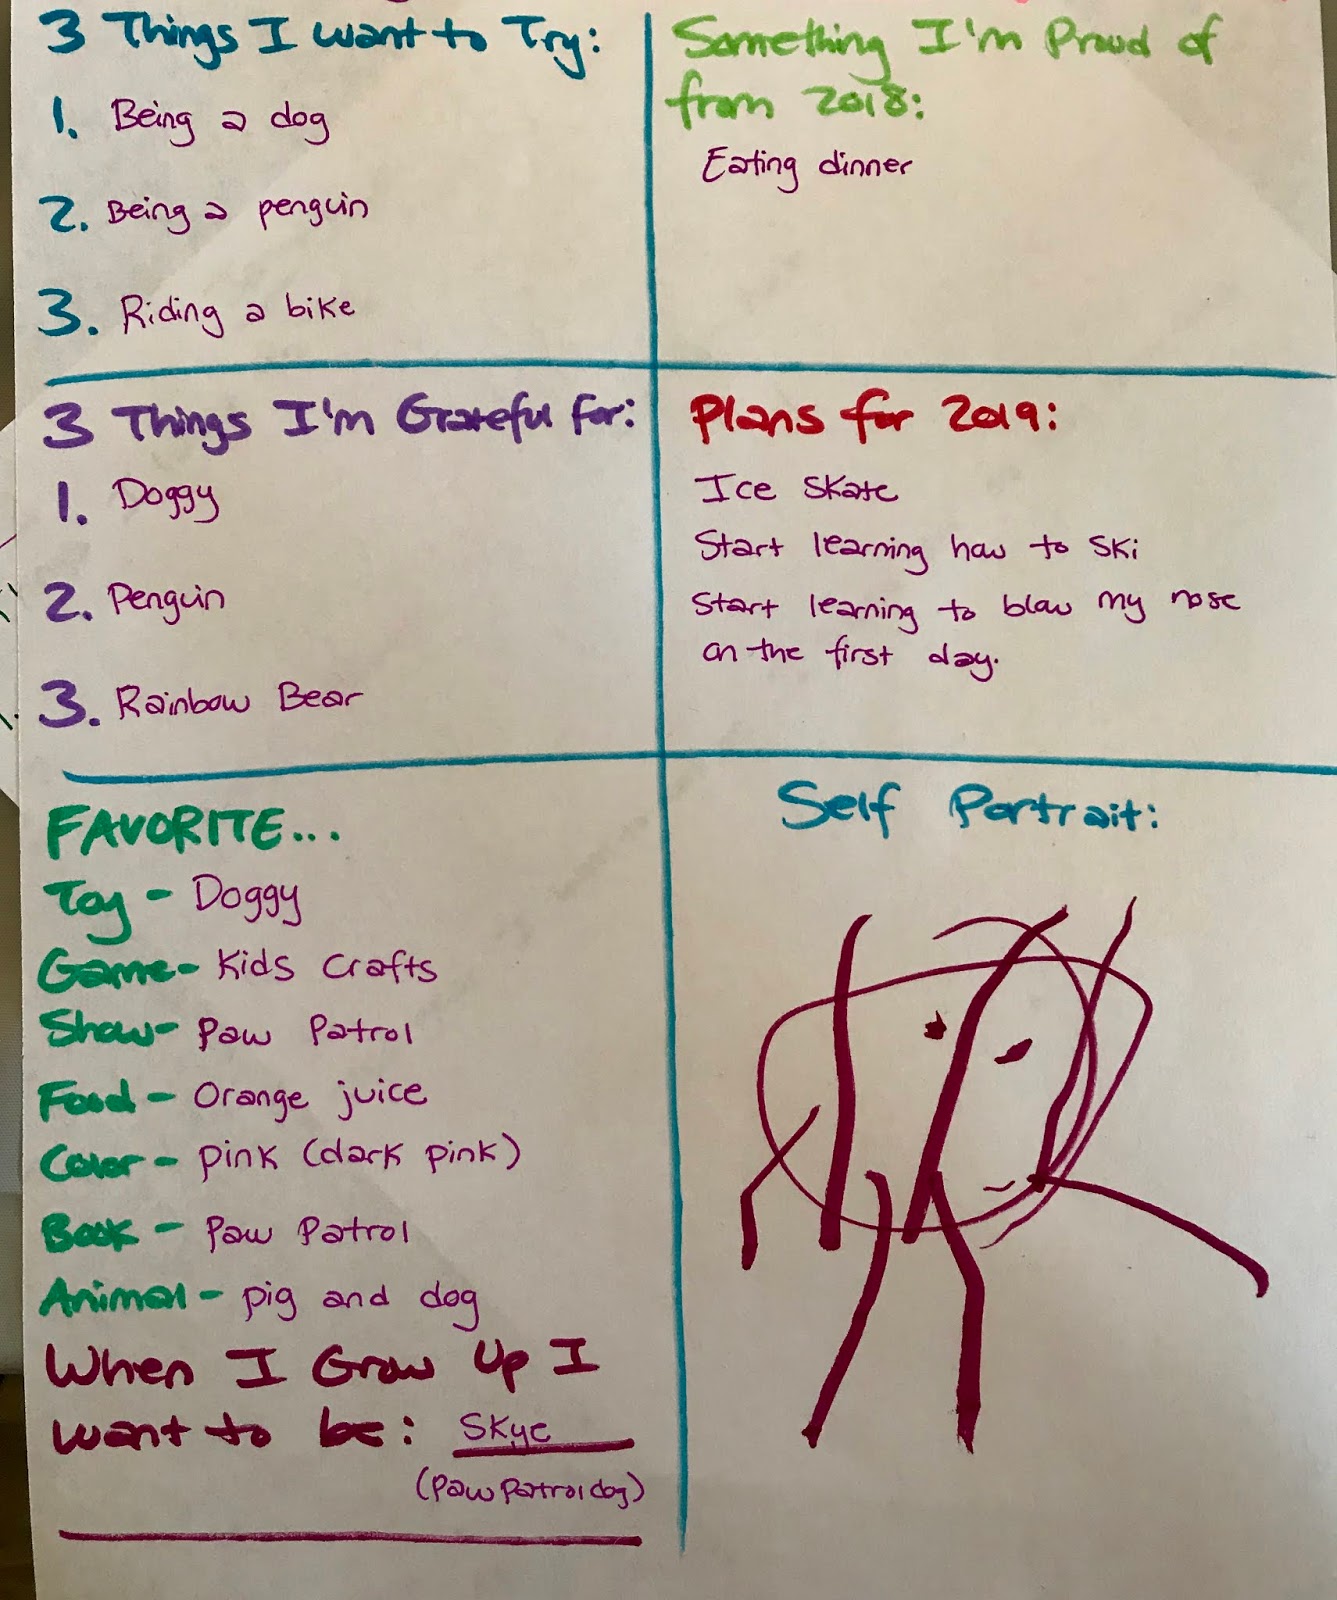 3 Things I want to Try:
1. Being a dog
2. Being a penguin
3. Riding a bike
Something I'm Proud of
from 2018:
Eating dinner
3 Things I'm Grateful for:
1. Doggy
2. Penguin
3. Rainbow Bear
Plans for 2019:
Ice Skate
Start learning how to Ski
Start learning to blow my nose
on the first day.
FAVORITE...
Toy - Doggy
Game- Kids Crafts
Show- Paw Patrol
Food - Orange juice
Color - pink (dark pink)
Book - Paw Patrol
Animal - pig and dog
When I Grow Up I
want to be: Skye
(Paw Patrol dog)
Self Portrait: